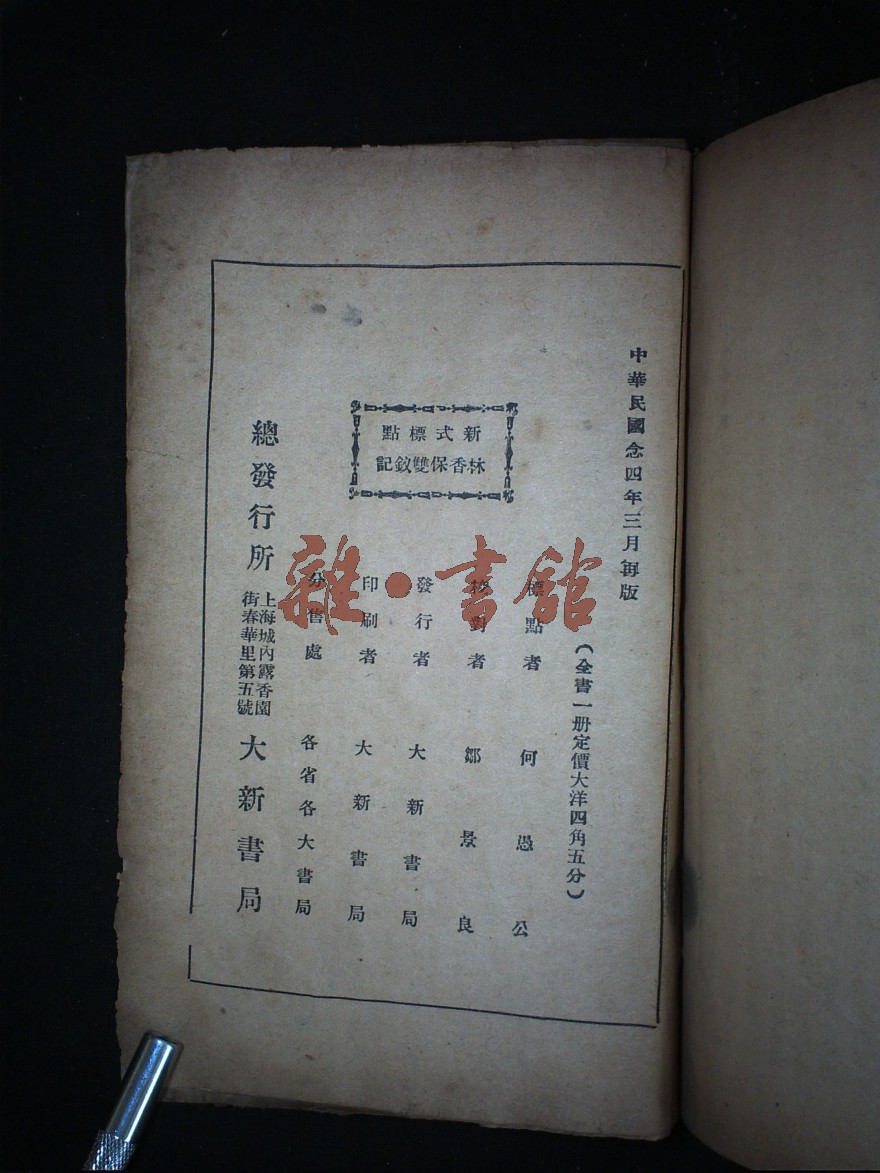 中華民國念四年三月再版
（全書一册定價大洋四角五分）
新式標點
林香保雙釵記
標點者 何愚公
校對者 鄒景良
發行者 大新書局
印刷者 大新書局
分售處 各省各大書局
總發行所 上海城內露香園街春華里第五號 大新書局
雜·書館